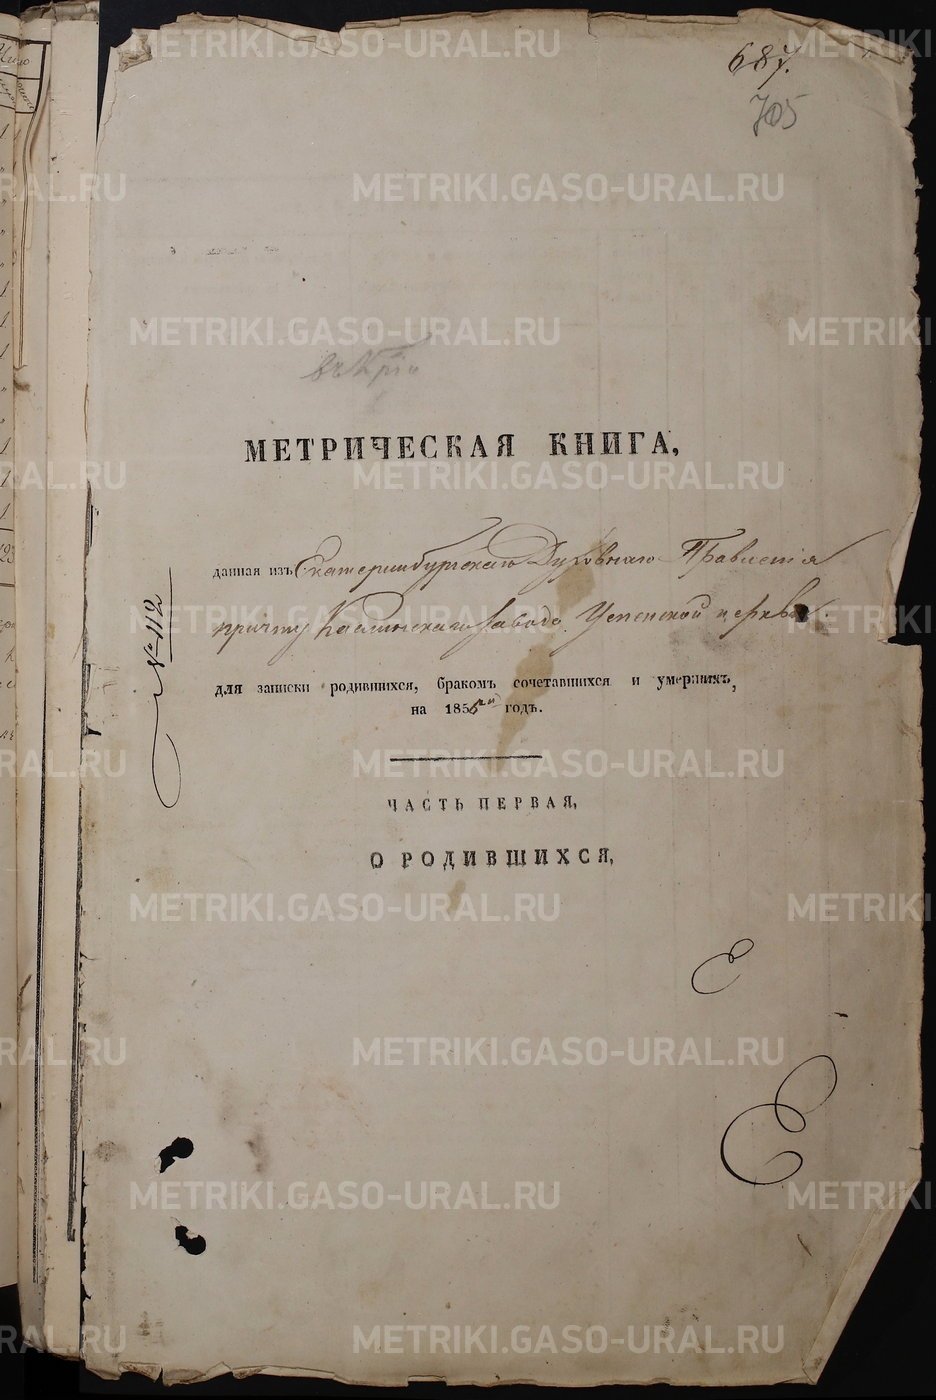 METRIKI.GASO-URAL.RU
687.
705
МЕТРИЧЕСКАЯ КНИГА,
данная изъ Екатеринбургскаго Духовнаго Правленія
причту Каслинскаго завода Успенской церкви
для записки родившихся, бракомъ сочетавшихся и умершихъ,
на 1856й годъ.
№ 112
ЧАСТЬ ПЕРВАЯ,
О РОДИВШИХСЯ,
Е
Е